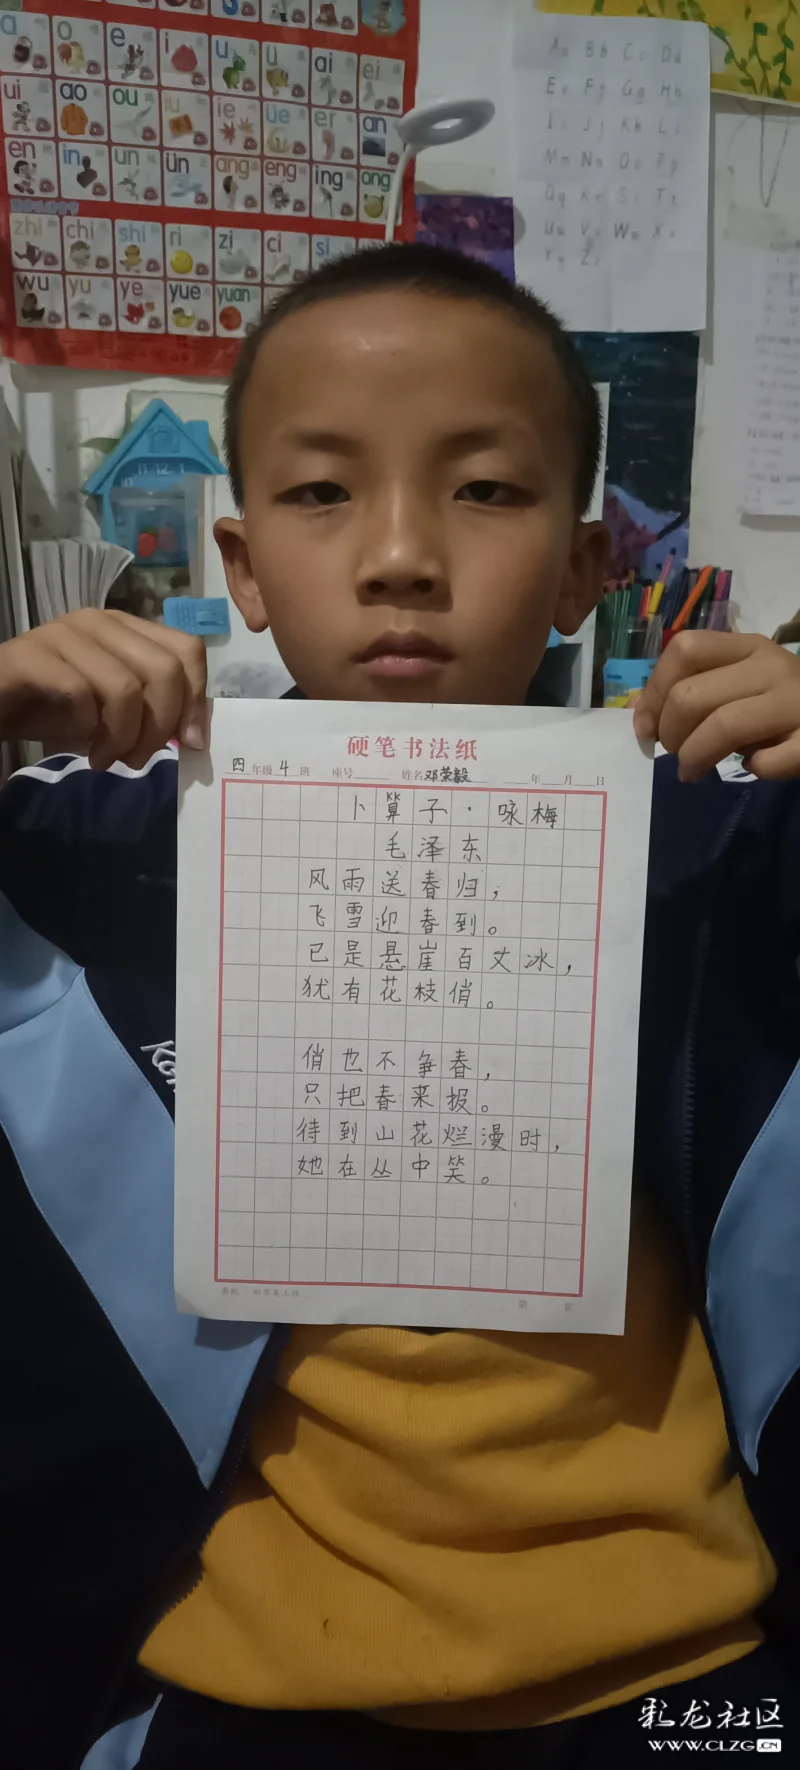 a o e i u ü ai ei
ui ao ou iu ie üe er an
en in un ün ang eng ing ong
zhi chi shi ri zi ci si
wu yu ye yue yuan
Aa Bb Cc Dd
Ee Ff Gg Hh
Ii Jj Kk Ll
Mm Nn Oo Pp
Qq Rr Ss Tt
Uu Vv Ww Xx
Yy Zz
11 12 1
硬笔书法纸
四年级 4 班 座号 姓名 邓荣毅 年 月 日
卜算子·咏梅
毛泽东
风雨送春归,
飞雪迎春到。
已是悬崖百丈冰,
犹有花枝俏。
俏也不争春,
只把春来报。
待到山花烂漫时,
她在丛中笑。
第 页
彩龙社区
WWW.CLZG.CN